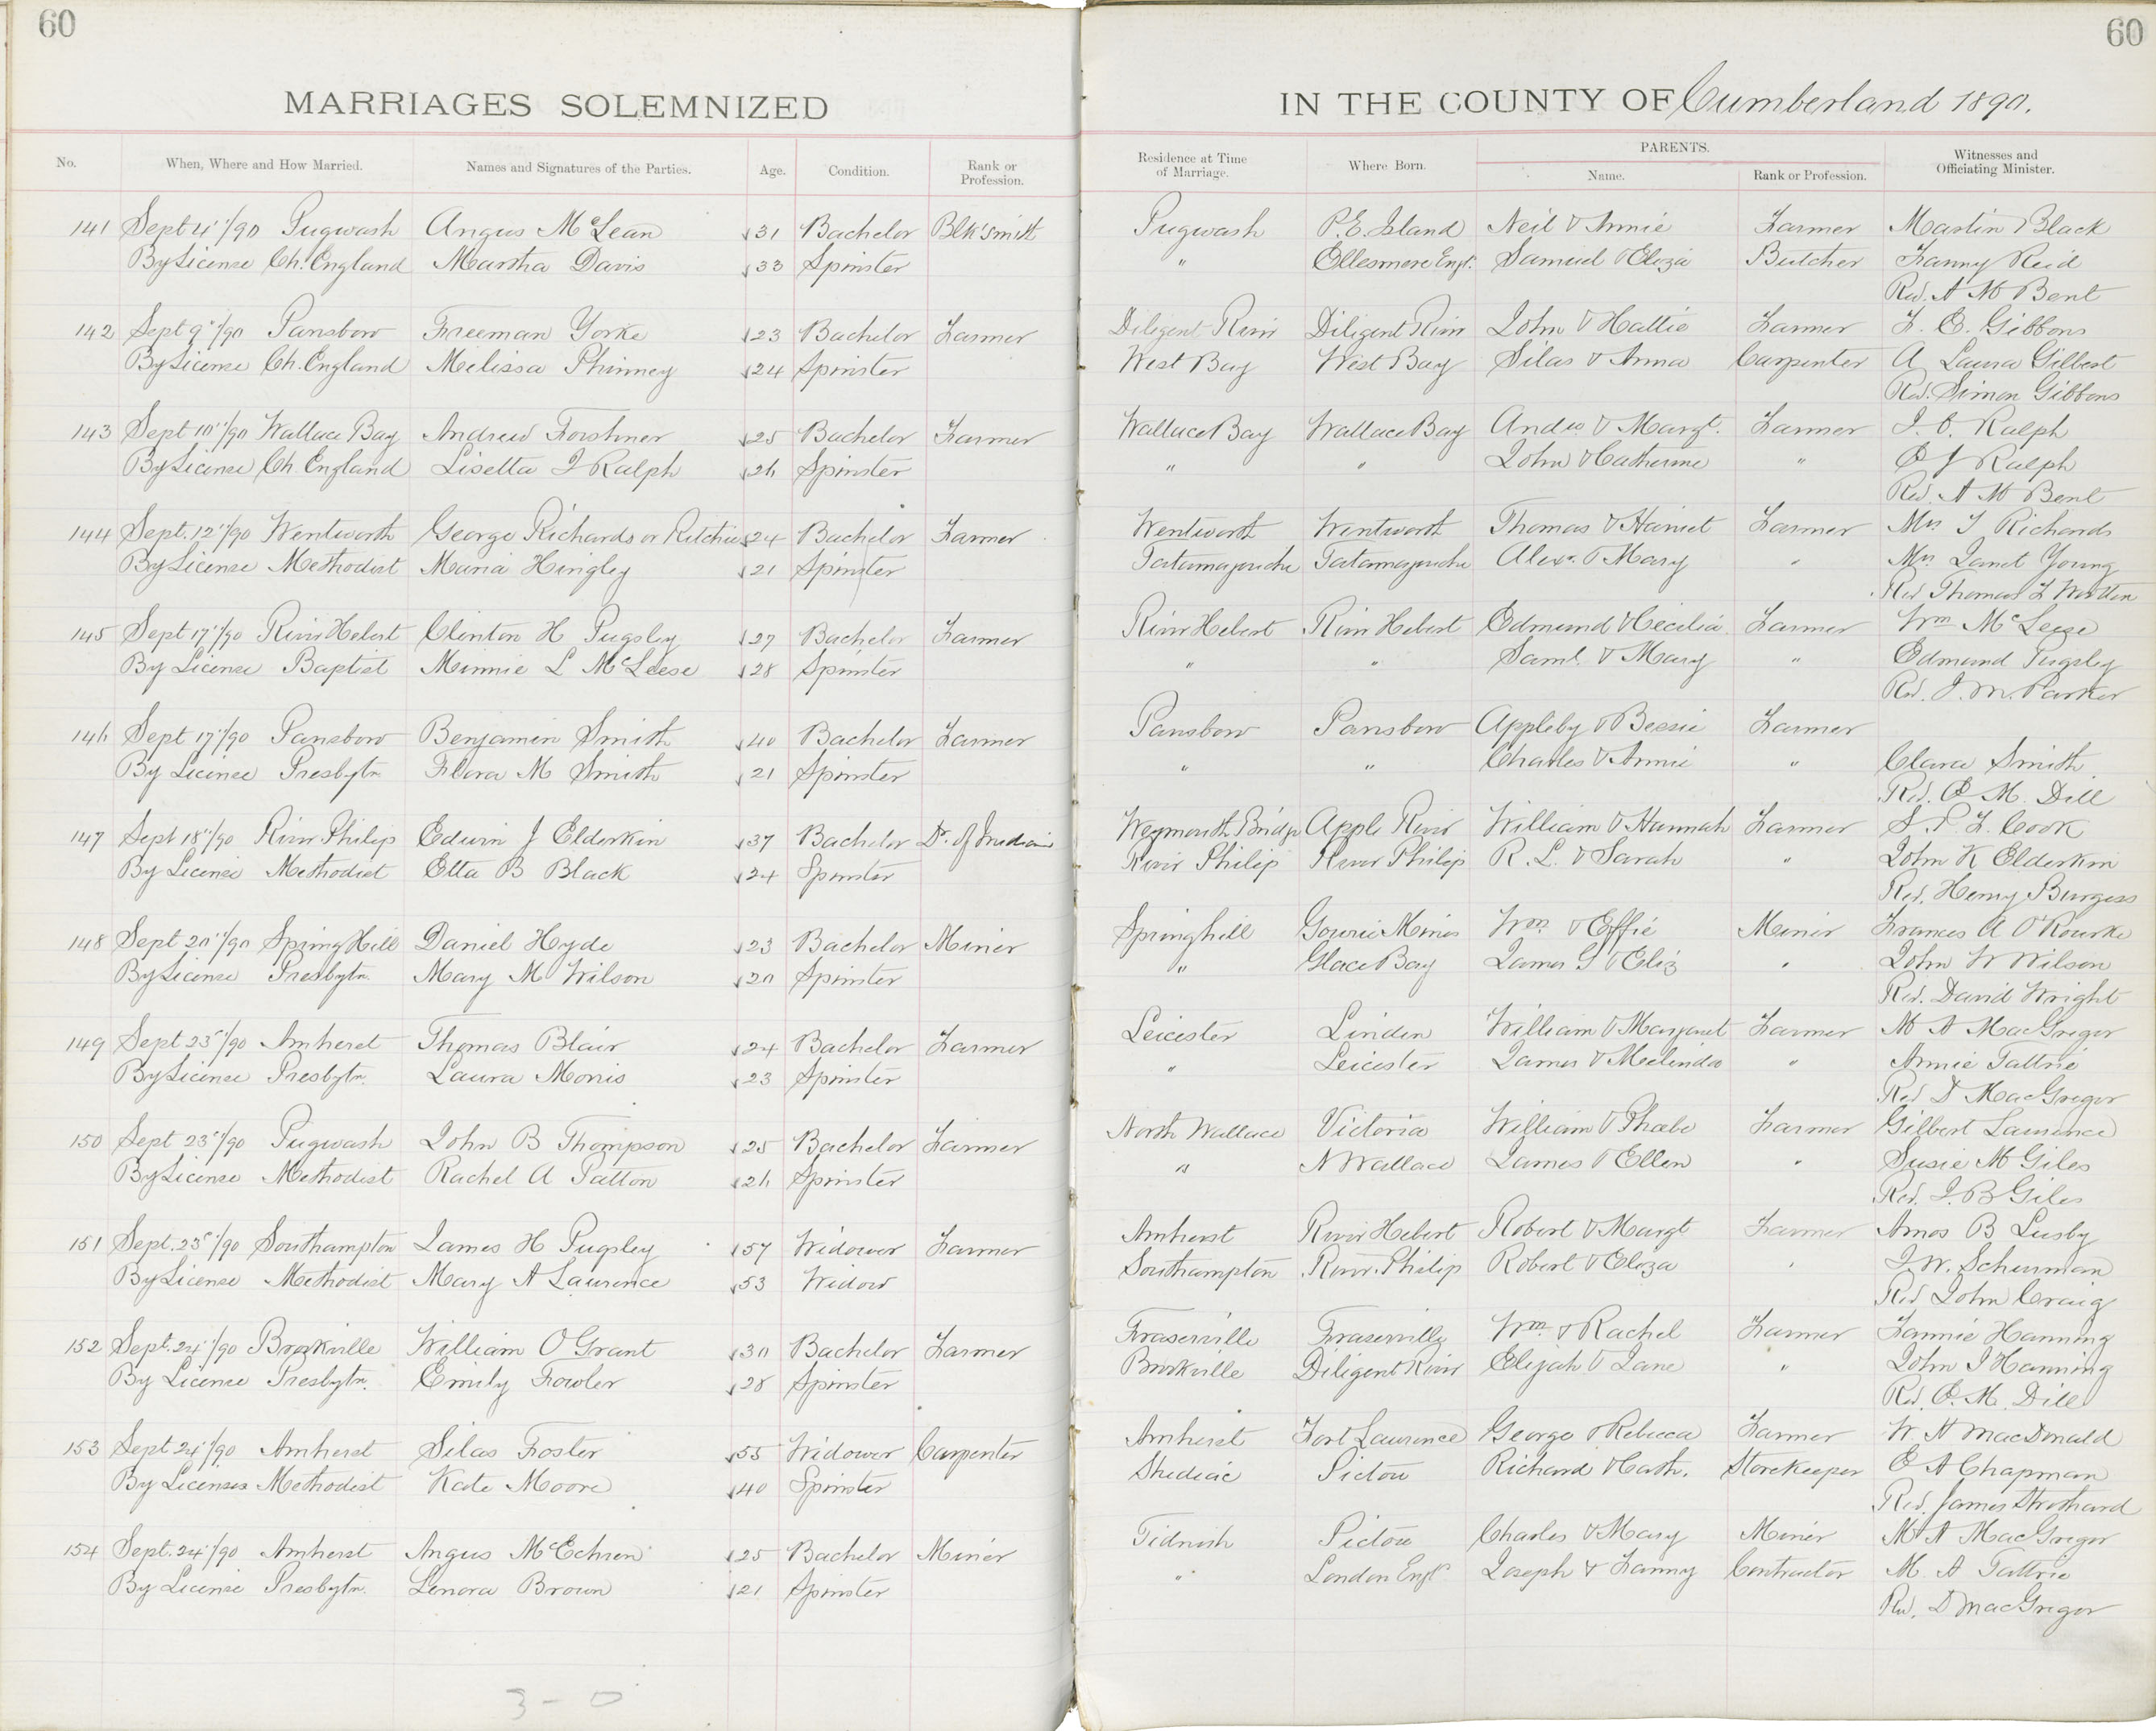 60
60
MARRIAGES SOLEMNIZED
IN THE COUNTY OF Cumberland 1890.
No. When, Where and How Married. Names and Signatures of the Parties. Age. Condition. Rank or Profession. Residence at Time of Marriage. Where Born. PARENTS. Name. Rank or Profession. Witnesses and Officiating Minister.
141 Sept 4"/90 Pugwash Angus McLean 31 Bachelor Blk'smith Pugwash P.E. Island Neil & Annie Farmer Martin Black
By License Ch. England Martha Davis 33 Spinster " Ellesmere Engl. Samuel & Eliza Butcher Fanny Reid
Rev. A M Bent
142 Sept 9"/90 Parrsboro Freeman Yorke 23 Bachelor Farmer Diligent River Diligent River John & Hattie Farmer F. E. Gibbons
By License Ch. England Melissa Phinney 24 Spinster West Bay West Bay Silas & Anna Carpenter A Laura Gilbert
Rev. Simon Gibbons
143 Sept 10"/90 Wallace Bay Andrew Forshner 25 Bachelor Farmer Wallace Bay Wallace Bay Andw & Margt. Farmer J. C. Ralph
By License Ch. England Lisetta J Ralph 26 Spinster " " John & Catherine " E J Ralph
Rev. A M Bent
144 Sept. 12"/90 Wentworth George Richards or Ritchie 24 Bachelor Farmer Wentworth Wentworth Thomas & Harriet Farmer Mrs J Richards
By License Methodist Maria Hingley 21 Spinster Tatamagouche Tatamagouche Alexr. & Mary " Mrs Janet Young
Rev Thomas L Wootten
145 Sept 17"/90 River Hebert Clinton H Pugsley 27 Bachelor Farmer River Hebert River Hebert Edmund & Cecilia Farmer Wm McLeese
By License Baptist Minnie L McLeese 28 Spinster " " Saml. & Mary " Edmund Pugsley
Rev. J. M. Parker
146 Sept 17"/90 Parrsboro Benjamin Smith 40 Bachelor Farmer Parrsboro Parrsboro Appleby & Bessie Farmer
By License Presbytn Flora M Smith 21 Spinster " " Charles & Annie " Clara Smith
Rev. E M. Dill
147 Sept 18"/90 River Philip Edwin J Elderkin 37 Bachelor Dr. of Medicine Weymouth Bridge Apple River William & Hannah Farmer S. P. F. Cook
By License Methodist Etta B Black 24 Spinster River Philip River Philip R. L. & Sarah " John K Elderkin
Rev. Henry Burgess
148 Sept 20"/90 Spring Hill Daniel Hyde 23 Bachelor Miner Springhill Gowrie Mines Wm & Effie Miner Frances A O'Rourke
By License Presbytn. Mary M Wilson 20 Spinster " Glace Bay James S & Eliz " John W Wilson
Rev. David Wright
149 Sept 23"/90 Amherst Thomas Blair 24 Bachelor Farmer Leicester Linden William & Margaret Farmer M A MacGregor
By License Presbytn. Laura Morris 23 Spinster " Leicester James & Melinda " Annie Tattrie
Rev D MacGregor
150 Sept 23"/90 Pugwash John B Thompson 25 Bachelor Farmer North Wallace Victoria William & Phoebe Farmer Gilbert Laurence
By License Methodist Rachel A Patton 26 Spinster " N Wallace James & Ellen " Susie M Giles
Rev. J. B Giles
151 Sept. 23"/90 Southampton James H Pugsley 57 Widower Farmer Amherst River Hebert Robert & Margt Farmer Amos B Lusby
By License Methodist Mary A Laurence 53 Widow Southampton River Philip Robert & Eliza " J. W. Schurman
Rev John Craig
152 Sept. 24"/90 Brookville William O Grant 30 Bachelor Farmer Fraserville Fraserville Wm & Rachel Farmer Fannie Hanning
By License Presbytn. Emily Fowler 28 Spinster Brookville Diligent River Elijah & Jane " John J Hanning
Rev. E. M. Dill
153 Sept 24"/90 Amherst Silas Foster 55 Widower Carpenter Amherst Fort Laurence George & Rebecca Farmer W. A MacDonald
By License Methodist Kate Moore 40 Spinster Shediac Pictou Richard & Cath. Storekeeper E A Chapman
Rev. James Strothard
154 Sept. 24"/90 Amherst Angus McEchren 25 Bachelor Miner Tidnish Pictou Charles & Mary Miner M A MacGregor
By License Presbytn. Lenora Brown 21 Spinster " London Engl. Joseph & Fanny Contractor M. A Tattrie
Rev. D MacGregor
3 - 0